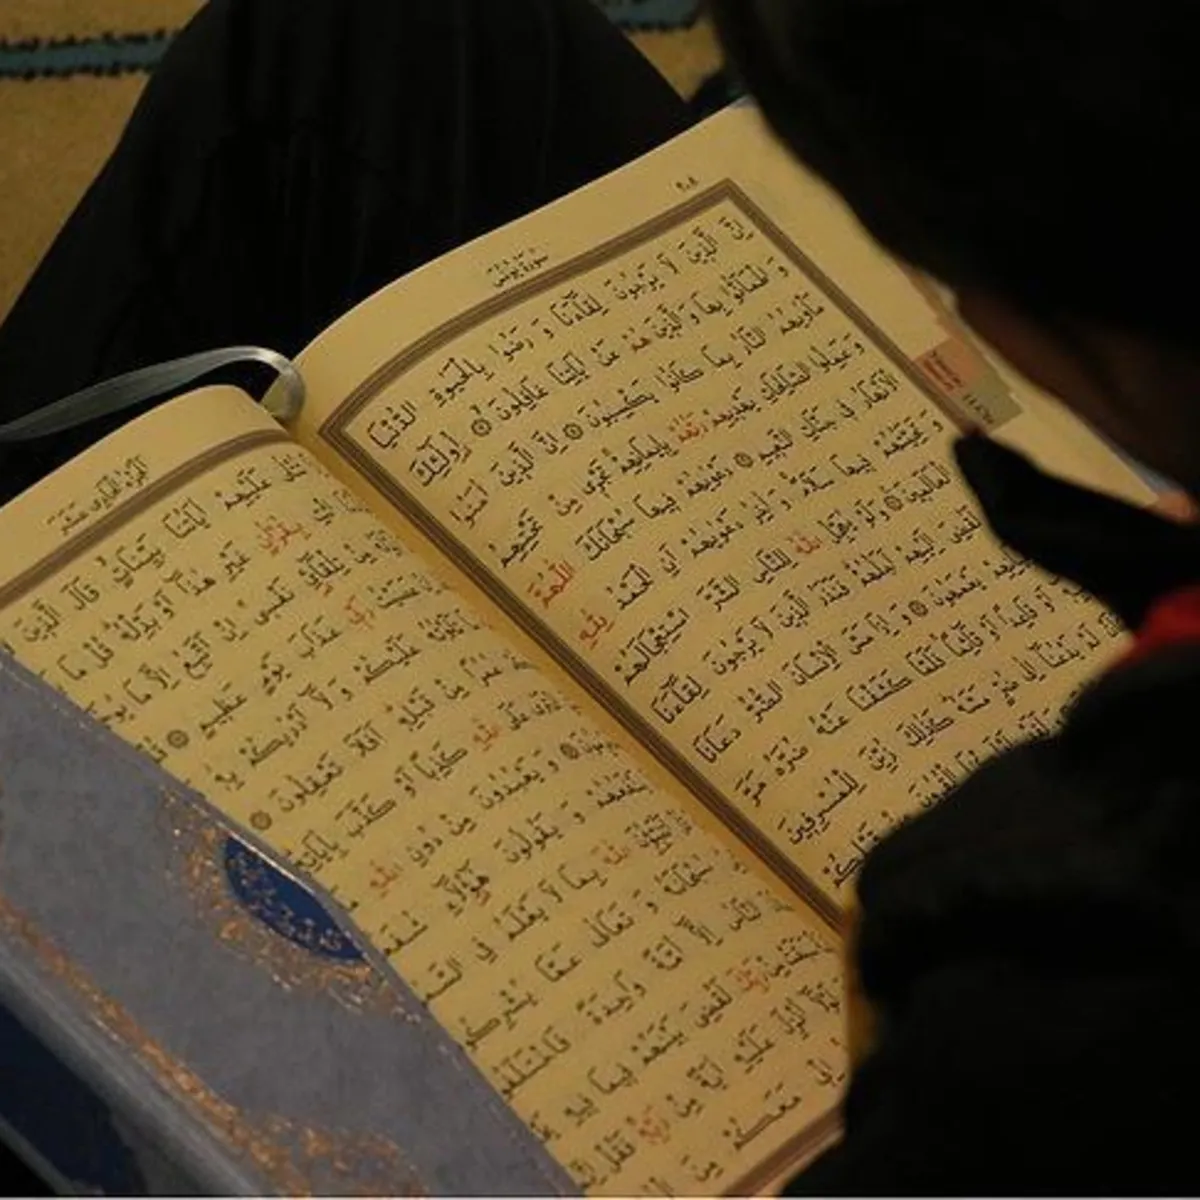 ٢٠٨
سُورَةُ يُونُسَ
اِنَّ الَّذِينَ لَا يَرْجُونَ لِقَاءَنَا وَرَضُوا بِالْحَيٰوةِ الدُّنْيَا
وَاطْمَاَنُّوا بِهَا وَالَّذِينَ هُمْ عَنْ اٰيَاتِنَا غَافِلُونَ ٧ اُولٰئِكَ
مَأْوٰيهُمُ النَّارُ بِمَا كَانُوا يَكْسِبُونَ ٨ اِنَّ الَّذِينَ اٰمَنُوا
وَعَمِلُوا الصَّالِحَاتِ يَهْدِيهِمْ رَبُّهُمْ بِاِيمَانِهِمْ تَجْرِي مِنْ تَحْتِهِمُ
الْاَنْهَارُ فِي جَنَّاتِ النَّعِيمِ ٩ دَعْوٰيهُمْ فِيهَا سُبْحَانَكَ اللّٰهُمَّ
وَتَحِيَّتُهُمْ فِيهَا سَلَامٌ وَاٰخِرُ دَعْوٰيهُمْ اَنِ الْحَمْدُ لِلّٰهِ
الْعَالَمِينَ ١٠ وَلَوْ يُعَجِّلُ اللّٰهُ لِلنَّاسِ الشَّرَّ اسْتِعْجَالَهُمْ
لَقُضِيَ اِلَيْهِمْ اَجَلُهُمْ فَنَذَرُ الَّذِينَ لَا يَرْجُونَ لِقَاءَنَا
يَعْمَهُونَ ١١ وَاِذَا مَسَّ الْاِنْسَانَ الضُّرُّ دَعَانَا
اَوْ قَاعِدًا اَوْ قَائِمًا فَلَمَّا كَشَفْنَا عَنْهُ ضُرَّهُ مَرَّ
لَمْ يَدْعُنَا اِلٰى ضُرٍّ مَسَّهُ كَذٰلِكَ زُيِّنَ لِلْمُسْرِفِينَ
اَلْجُزْءُ الْحَادِي عَشَرَ
تُتْلٰى عَلَيْهِمْ اٰيَاتُنَا بَيِّنَاتٍ قَالَ الَّذِينَ
بِقُرْاٰنٍ غَيْرِ هٰذَا اَوْ بَدِّلْهُ قُلْ مَا
مِنْ تِلْقَائِ نَفْسِي اِنْ اَتَّبِعُ اِلَّا مَا
عَصَيْتُ رَبِّي عَذَابَ يَوْمٍ عَظِيمٍ
تَلَوْتُهُ عَلَيْكُمْ وَلَا اَدْرٰيكُمْ
عُمُرًا مِنْ قَبْلِهِ اَفَلَا تَعْقِلُونَ
عَلَى اللّٰهِ كَذِبًا اَوْ كَذَّبَ
وَيَعْبُدُونَ مِنْ دُونِ اللّٰهِ
يَنْفَعُهُمْ وَيَقُولُونَ هٰؤُلَاءِ
اللّٰهَ بِمَا لَا يَعْلَمُ فِي
سُبْحَانَهُ وَتَعَالٰى عَمَّا يُشْرِكُونَ
النَّاسُ اِلَّا اُمَّةً وَاحِدَةً فَاخْتَلَفُوا
رَبِّكَ لَقُضِيَ بَيْنَهُمْ فِيمَا فِيهِ
اُنْزِلَ عَلَيْهِ اٰيَةٌ مِنْ رَبِّهِ فَقُلْ
مَعَكُمْ مِنَ